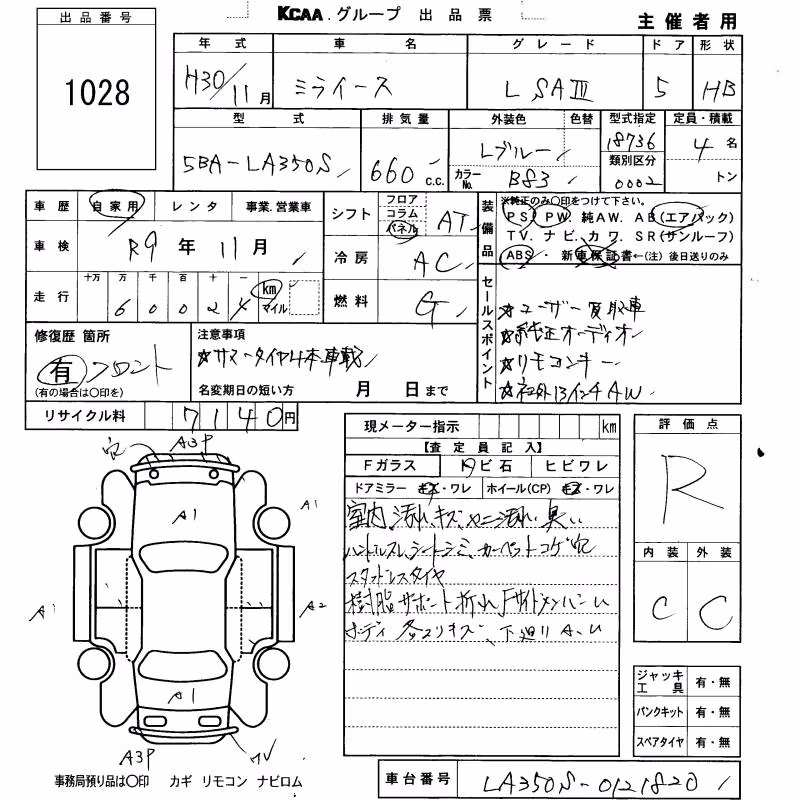 出品番号
1028
KCAA.グループ 出品票
主催者用
年式 車名 グレード ドア 形状
H30/11月 ミライース L SAⅢ 5 HB
型式 排気量 外装色 色替 型式指定 定員・積載
5BA-LA350S 660 c.c. Lブルー 18736 4名
カラーNo. B83 類別区分 0002 トン
車歴 自家用 レンタ 事業.営業車
車検 R9年11月
走行 十万 万 千 百 十 一 km マイル
6 0 0 2 4
シフト フロア コラム パネル AT
冷房 AC
燃料 G
装備品
※純正のみ〇印をつけて下さい。
PS PW 純AW. AB(エアバック)
TV. ナビ. カワ. SR(サンルーフ)
ABS・新車保証書←(注)後日送りのみ
セールスポイント
☆ユーザー買取車
☆純正オーディオ
☆リモコンキー
☆社外13インチAW
修復歴 箇所
有 フロント
(有の場合は〇印を)
注意事項
☆サマータイヤ4本車載
名変期日の短い方 月 日まで
リサイクル料 7140円
現メーター指示 km
【査定員記入】
Fガラス トビ石 ヒビワレ
ドアミラー キズ・ワレ ホイール(CP) キズ・ワレ
室内汚れ、キズ、ヤニ汚れ、臭い
ハンドルスレ、シートシミ、カーペットコゲ穴
スタッドレスタイヤ
樹脂サポート折れ FサイドメンバーU
ボディ各スリキズ、下廻りA、U
評価点
R
内装 外装
C C
ジャッキ工具 有・無
パンクキット 有・無
スペアタイヤ 有・無
穴 A3P
A1
A1
A1
A2
A1
A3P
事務局預り品は〇印 カギ リモコン ナビロム
車台番号 LA350S-0121820